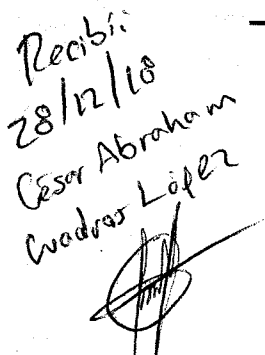 Recibí:
28/12/18
César Abraham
Cuadras López